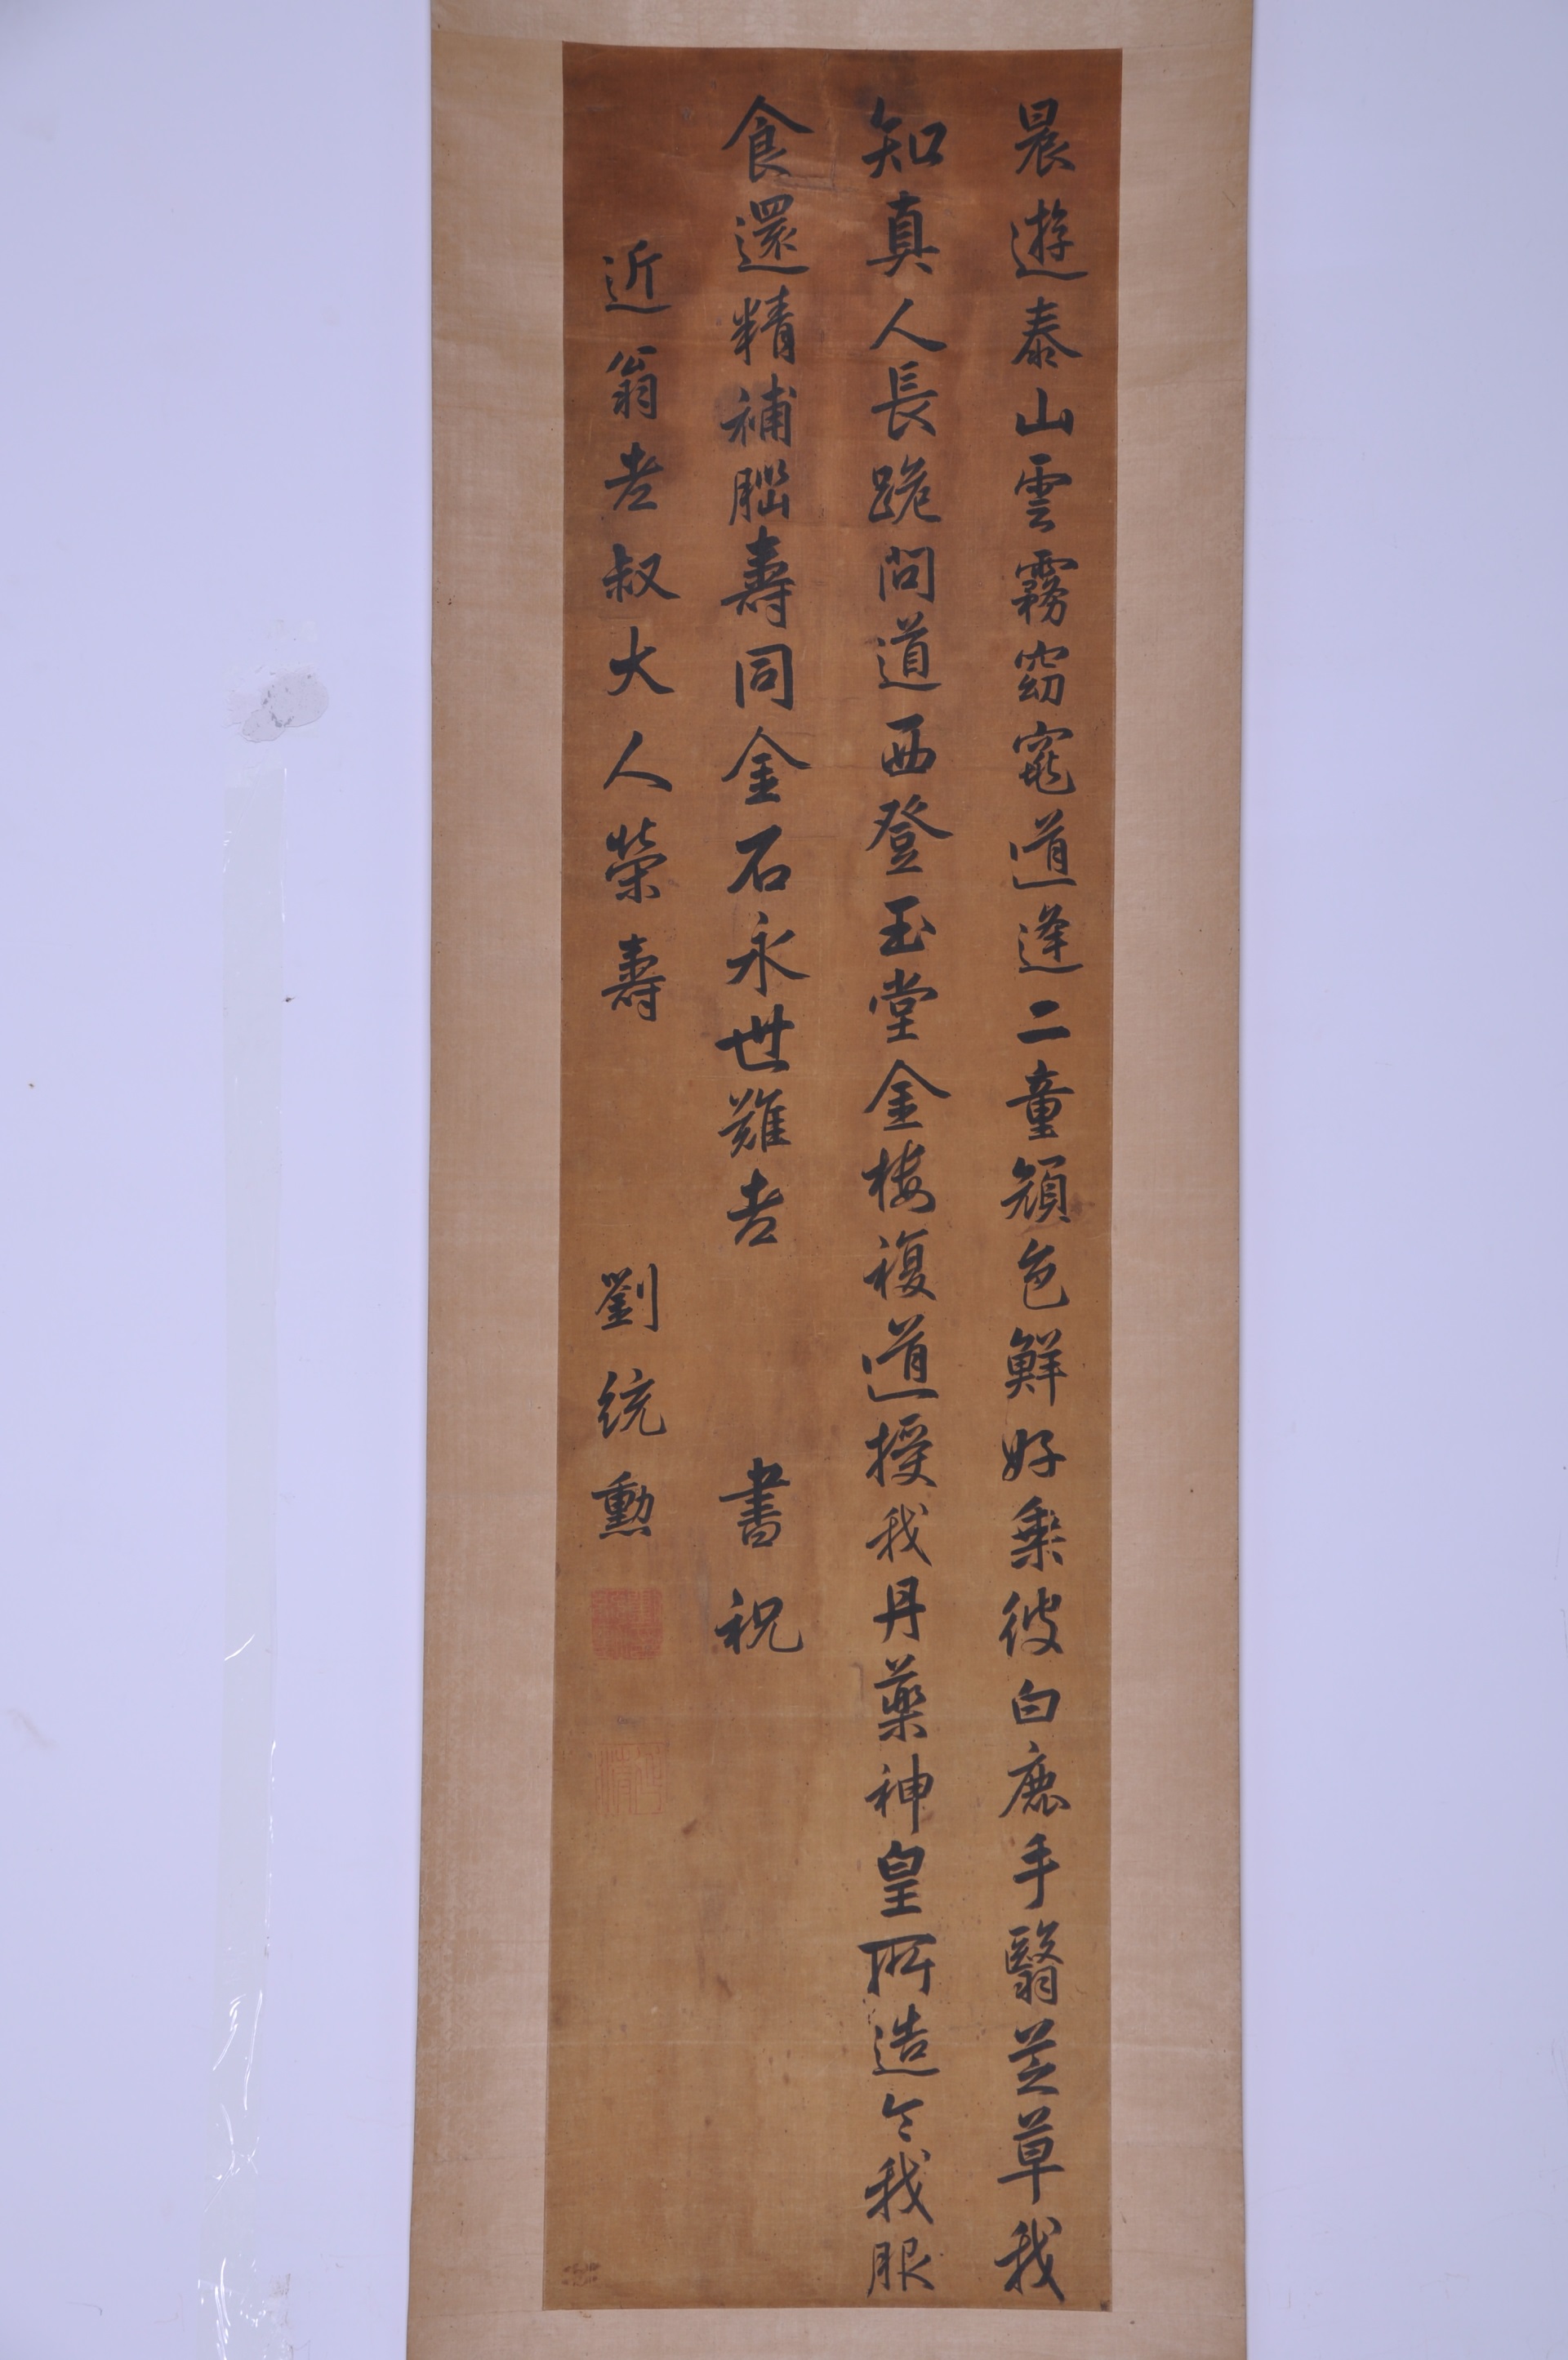 晨遊泰山雲霧窈窕道逢二童顏色鮮好乘彼白鹿手翳芝草我
知真人長跪問道西登玉堂金樓複道授我丹藥神皇所造令我服
食還精補腦壽同金石永世難老 書祝
近翁老叔大人榮壽 劉統勳